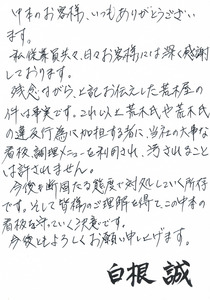 中本のお客様、いつもありがとうござい
ます。
私、従業員共々、日々お客様には深く感謝
しております。
残念ながら、上記お伝えした荒木屋の
件は事実です。これ以上荒木氏や荒木氏
の違反行為に加担する者に、当社の大事な
看板、調理、メニューを利用され、汚されること
は許されません。
今後も断固たる態度で対処していく所存
です。そして皆様のご理解を得て、この中本の
看板を守っていく決意です。
今後ともよろしくお願い申し上げます。
白根 誠